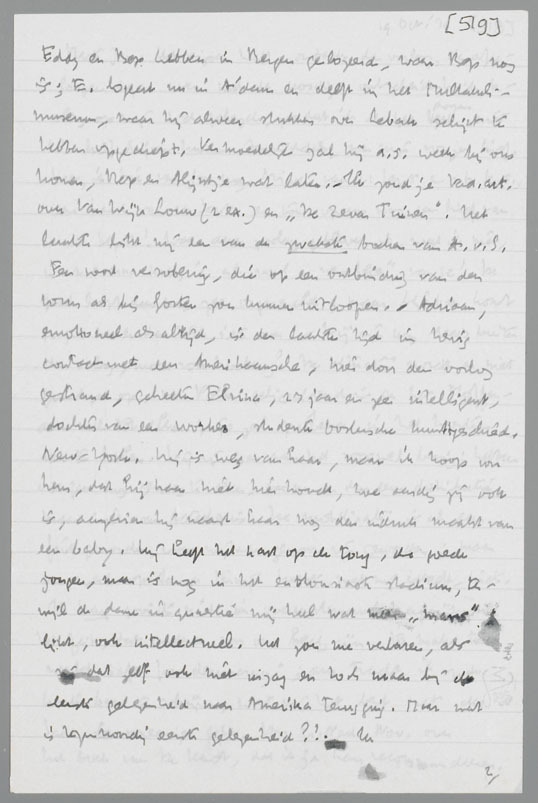 [519]
Eddy en Bep hebben in Bergen gelogeerd, waar Bep nog
is; E. logeert nu in A'dam en delft in het Multatuli-
museum, waar hij alweer stukken over Lebak schijnt te
hebben opgediept. Vermoedelijk zal hij a.s. week bij ons
komen, Bep en Alijntje wat later. – Ik zond je Vad. art.
over Van Wijk Louw (2 ex.) en „De Zeven Tuinen". Het
laatste lijkt mij een van de zwakste boeken van A. v. S.
Een soort verarming, die op een ontbinding van den
vorm als bij Gorter zou kunnen uitloopen. – Adriaan,
emotioneel als altijd, is den laatsten tijd in hevig
contact met een Amerikaansche, hier door den oorlog
gestrand, geheeten Elvina, 25 jaar en zeer intelligent,
dochter van een worker, studente kunstgeschied.
New-York. Hij is weg van haar, maar ik hoop voor
hem, dat hij haar niet hier houdt, hoe aardig zij ook
is, aangezien hij naast haar nog den indruk maakt van
een baby. Hij heeft het hart op de tong, de goede
jongen, maar is nog in het enthousiaste stadium, ter-
wijl de dame in quaestie mij heel wat „mans"
lijkt, ook intellectueel. Het zou me verbazen, als
dat zelf ook niet inzag en toch maar bij de
eerste gelegenheid naar Amerika terugging. Maar wat
is tegenwoordig eerste gelegenheid?! Ik
2/